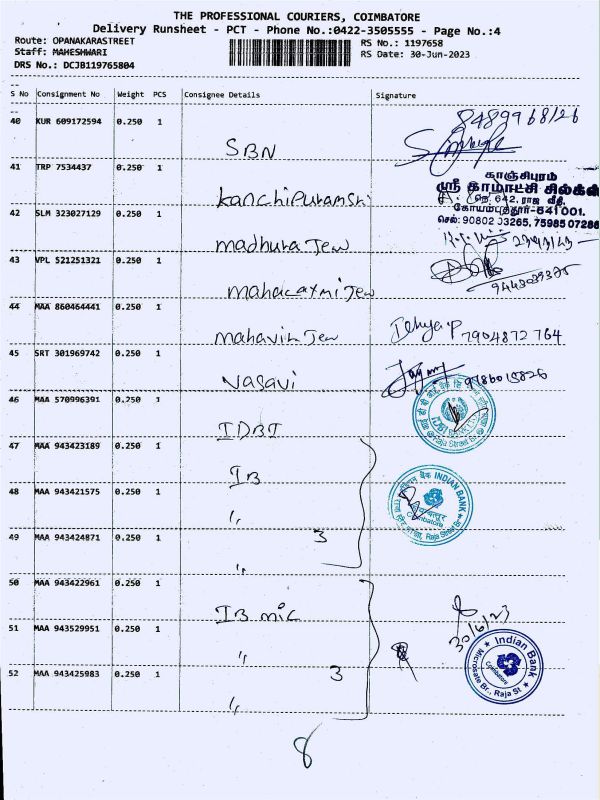 THE PROFESSIONAL COURIERS, COIMBATORE
Delivery Runsheet - PCT - Phone No.:0422-3505555 - Page No.:4
Route: OPANAKARASTREET
RS No.: 1197658
Staff: MAHESHWARI
RS Date: 30-Jun-2023
DRS No.: DCJB119765804
S No Consignment No Weight PCS Consignee Details Signature
40 KUR 609172594 0.250 1
8489968126
SBN
41 TRP 7534437 0.250 1
காஞ்சிபுரம்
ஸ்ரீ காமாட்சி சில்க்ஸ்
நெ. 642, ராஜ வீதி,
கோயம்புத்தூர்-641 001.
செல்: 90802 03265, 75985 07286
Kanchipuramsri
42 SLM 323027129 0.250 1
madhura Jew
43 VPL 521251321 0.250 1
mahalaxmi Jew
44 MAA 860464441 0.250 1
mahavir Jew 7904872764
45 SRT 301969742 0.250 1
Vasavi
46 MAA 570996391 0.250 1
IDBI
47 MAA 943423189 0.250 1
IB
INDIAN BANK
Coimbatore
48 MAA 943421575 0.250 1
"
49 MAA 943424871 0.250 1
3
"
50 MAA 943422961 0.250 1
IB mic
30/6/23
51 MAA 943529951 0.250 1
"
Indian Bank
Coimbatore
Microsate Br., Raja St
52 MAA 943425983 0.250 1
3
"
8